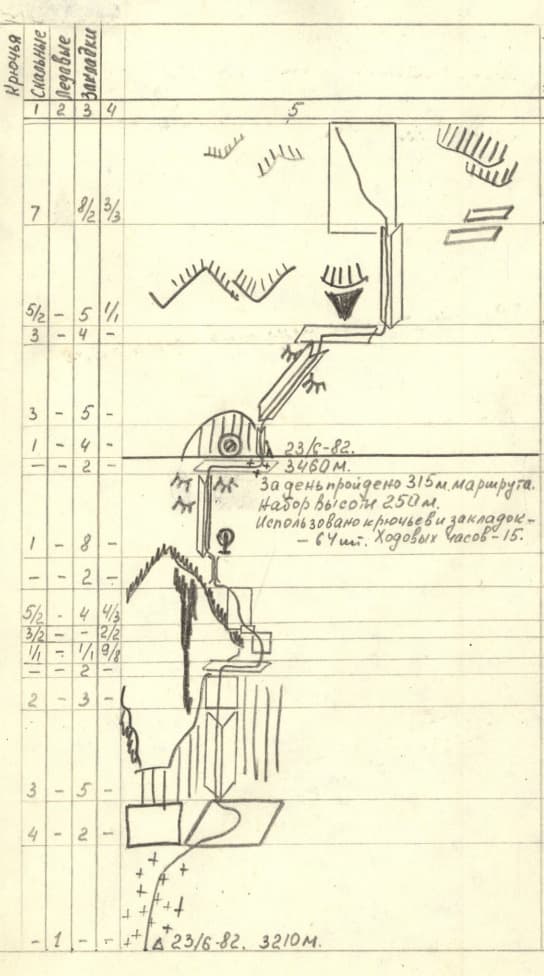 Крючья
Скальные
Ледовые
Закладки
1 2 3 4 5
7 8/2 3/3
5/2 - 5 1/1
3 - 4 -
3 - 5 -
1 - 4 -
23/6-82.
- - 2 -
3460 м.
За день пройдено 315 м. маршрута.
Набор высоти 250 м.
Использовано крючьев и закладок -
- 64 шт. Ходовых часов - 15.
1 - 8 -
- - 2 -
5/2 - 4 4/3
3/2 - - 2/2
1/1 - 1/1 9/8
- - 2 -
2 - 3 -
3 - 5 -
4 - 2 -
- 1 - -
23/6-82. 3210 м.